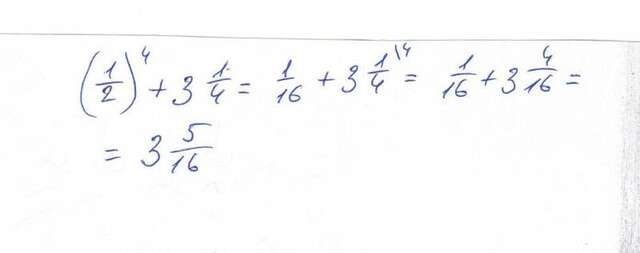 (1/2)^4 + 3 1/4 = 1/16 + 3 1/4 \4 = 1/16 + 3 4/16 =
= 3 5/16